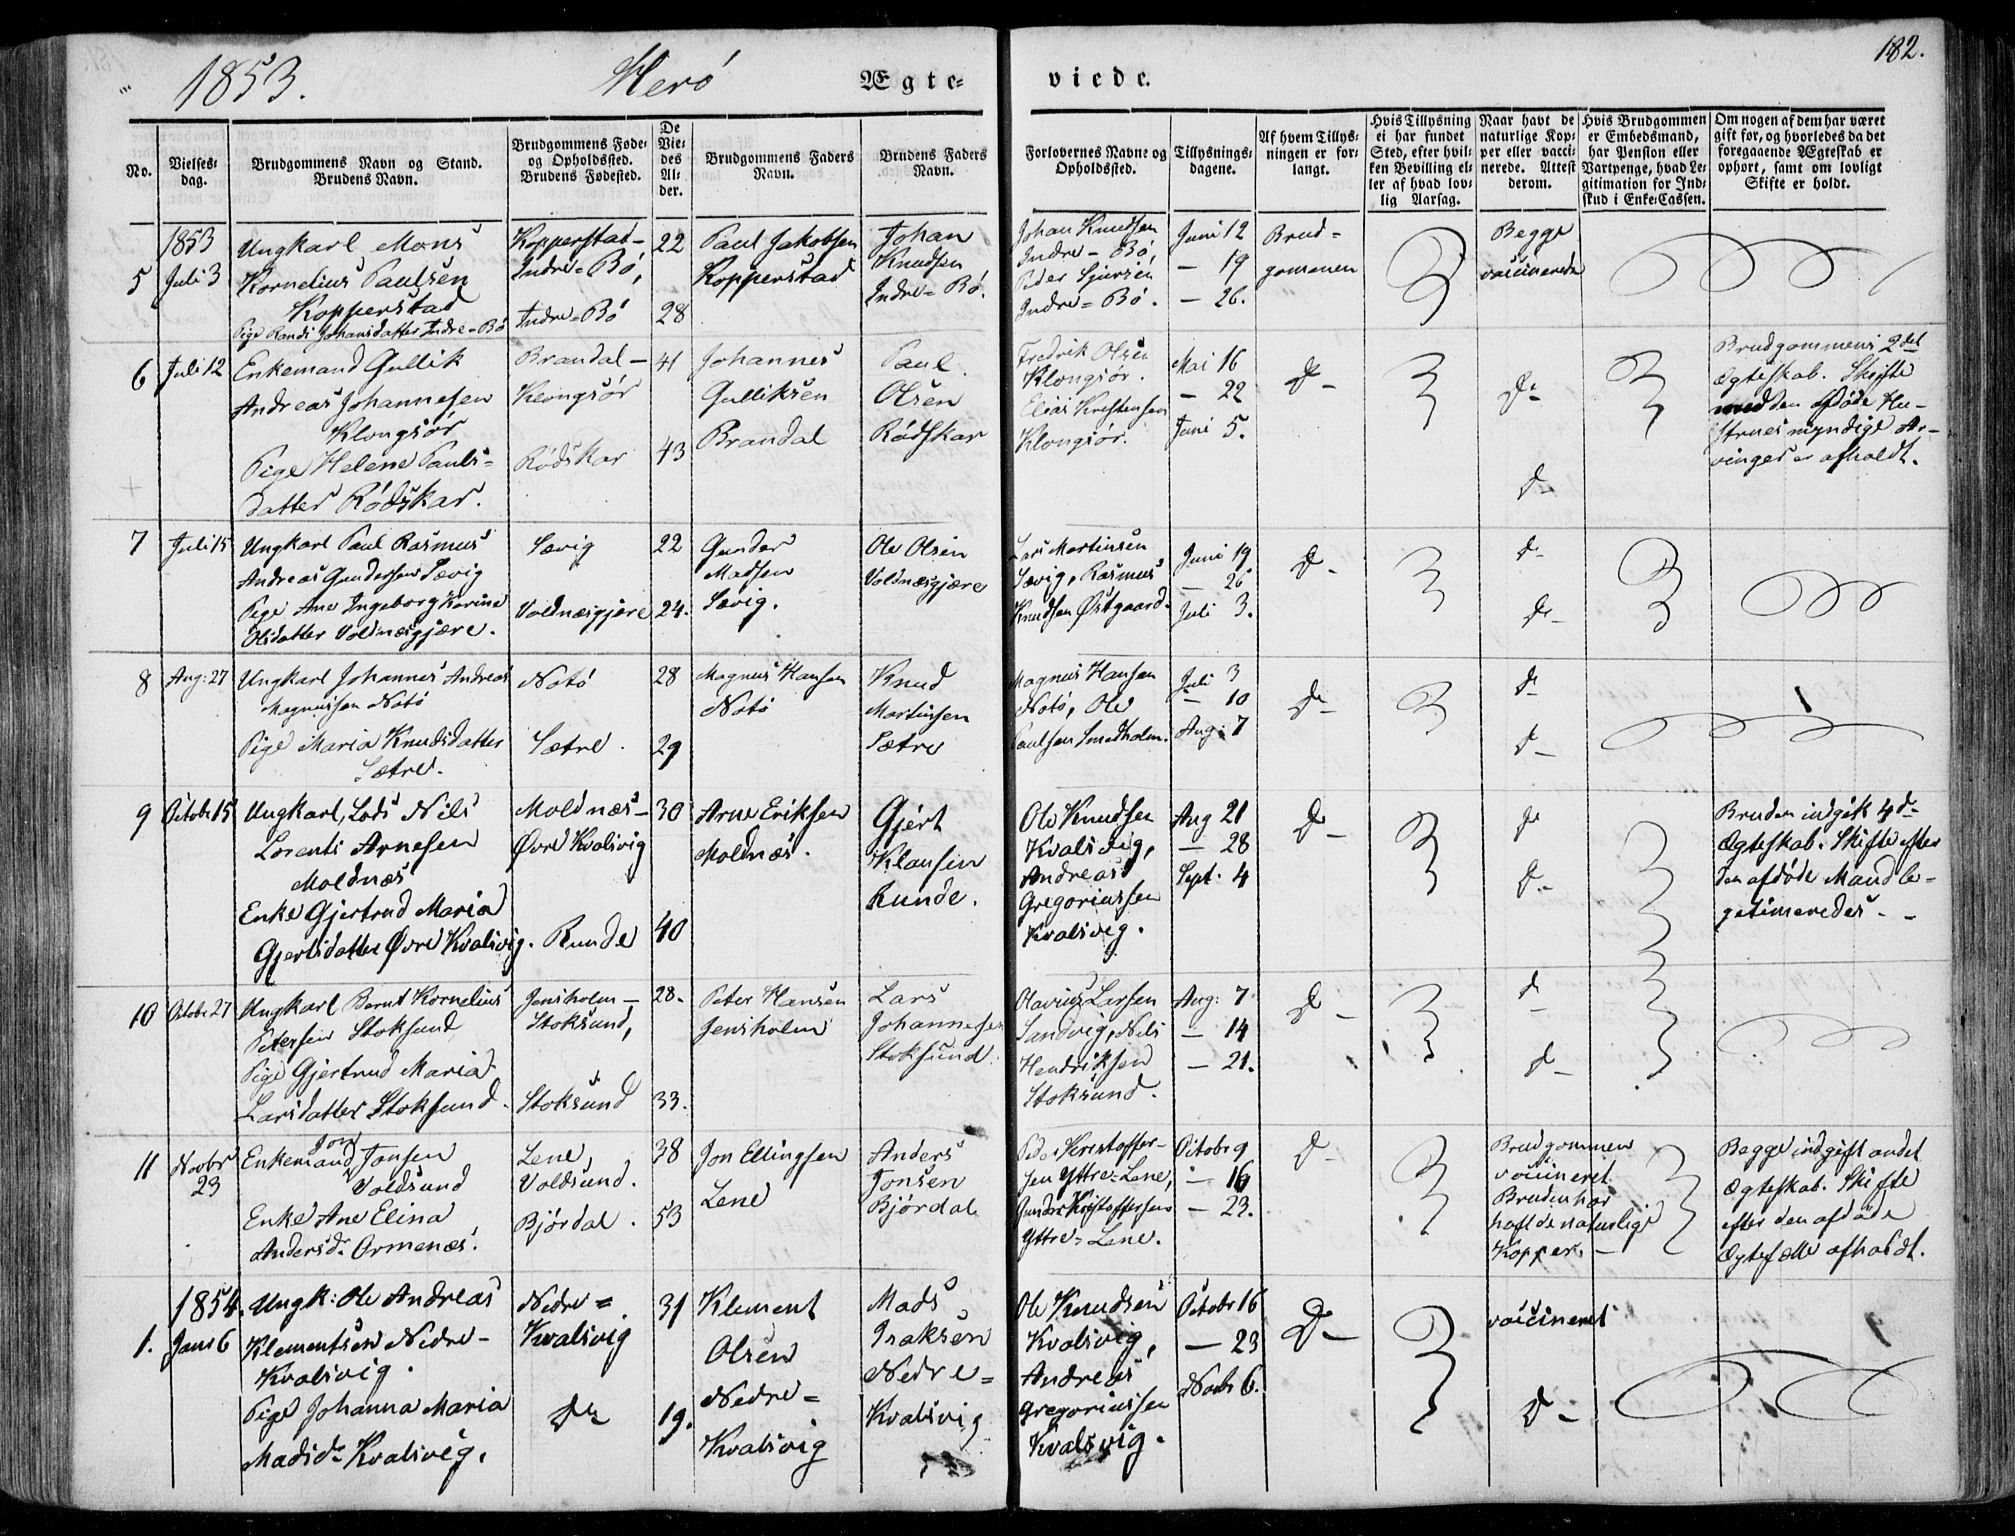 1853.
Herö
Ægte-
viede.
182.
No.
Vielses-
dag.
Brudgommens Navn og Stand.
Brudens Navn.
Brudgommens Føde-
og Opholdssted.
Brudens Fødested.
De
Vie-
des
Al-
der.
Brudgommens Faders
Navn.
Brudens Faders
Navn.
Forlovernes Navne og
Opholdssted.
Tillysnings-
dagene.
Af hvem Tillys-
ningen er for-
langt.
Hvis Tillysning
ei har fundet
Sted, efter hvil-
ken Bevilling el-
ler af hvad lov-
lig Aarsag.
Naar havt de
naturlige Kop-
per eller vacci-
nerede. Attest
derom.
Hvis Brudgommen
er Embedsmand,
har Pension eller
Vartpenge, hvad Le-
gitimation for Ind-
skud i Enke-Cassen.
Om nogen af dem har været
gift før, og hvorledes da det
foregaaende Ægteskab er
ophørt, samt om lovligt
Skifte er holdt.
5
1853
Juli 3
Ungkarl Mons
Kornelius Paulsen
Kopperstad
Pige Randi Johansdatter Indre-Bö
Kopperstad-
Indre-Bö,
Indre-Bö
22
28
Paul Jakobsen
Kopperstad
Johan
Knudsen
Indre-Bö.
Johan Knudsen
Indre-Bö,
Peder
Indre-Bö.
Juni 12
— 19
— 26.
Brud-
gommen
Begge
vaccinerede
6
Juli 12
Enkemand Gullik
Andreas Johannesen
Klongsör
Pige Helene Pauls-
datter Rödskar.
Brandal—
Klongsör
Rödskar
41
43
Johannes
Gulliksen
Brandal
Paul
Olsen
Rödskar
Fredrik Olsen
Klongsör.
Elias Kristensen
Klongsör.
Mai 16
— 22
Juni 5.
Do
Do
Do
Brudgommens 2det
Ægteskab. Skifte
med den afdöde Hu-
strues myndige Ar-
vinger er afholdt.
7
Juli 15
Ungkarl Paul Rasmus
Andreas Gundersen Sævig
Pige Ane Ingeborg Karine
Olsdatter Voldnæsgjære.
Sævig
Voldnæsgjære
22
24.
Gunder
Madsen
Sævig.
Ole Olsen
Voldnæsgjære
Lars Martinsen
Sævig, Rasmus
Knudsen Östgaard.
Juni 19
— 26
Juli 3.
Do
Do
Do
8
Aug: 27
Ungkarl Johannes Andreas
Magnussen Notö
Pige Maria Knudsdatter
Sætre.
Notö
Sætre.
28
29
Magnus Hansen
Notö
Knud
Martinsen
Sætre
Magnus Hansen
Notö, Ole
Paulsen Smedholm.
Juli 3
— 10
Aug: 7
Do
Do
Do
9
Octobr 15
Ungkarl, Lods Nils
Lorents Arnesen
Moldnæs
Enke Gjertrud Maria
Gjertsdatter Övre Kvalsvig.
Moldnæs—
Övre Kvalsvig
Runde
30
40
Arne Eriksen
Moldnæs.
Gjert
Klausen
Runde.
Ole Knudsen
Kvalsvig,
Andreas
Gregoriussen
Kvalsvig.
Aug 21
— 28
Sept. 4
Do
Do
Do
Bruden indgik 4de
Ægteskab. Skifte efter
den afdöde Mand le-
gitimeredes.
10
Octobr 27
Ungkarl Bernt Kornelius
Petersen Stoksund,
Pige Gjertrud Maria
Larsdatter Stoksund.
Jensholm—
Stoksund,
Stoksund
28.
33.
Peter Hansen
Jensholm
Lars
Johannesen
Stoksund.
Olavius Larsen
Sandvig, Nils
Hendriksen
Stoksund.
Aug: 7
— 14
— 21.
Do
Do
Do
11
Novbr
23
Enkemand Jon Jonsen
Voldsund
Enke Ane Elina
Andersdr Ormenæs.
Lene,
Voldsund.
Björdal.
38
53
Jon Ellingsen
Lene
Anders
Jonsen
Björdal
Peder Kristoffer-
sen Yttre-Lene,
Gunder Kristoffersen
Yttre-Lene.
Octobr 9
— 16
— 23.
Do
Brudgommen
vaccineret
Bruden har
haft de naturlige
Kopper.
Begge indgik andet
Ægteskab. Skifte
efter den afdöde
Ægtefælle afholdt.
1.
1854.
Janr 6
Ungk: Ole Andreas
Klementsen Nedre-
Kvalsvig.
Pige Johanna Maria
Madsdr Kvalsvig.
Nedre-
Kvalsvig
Do
31
19.
Klement
Olsen
Nedre-
Kvalsvig
Mads
Isaksen
Nedre-
Kvalsvig
Ole Knudsen
Kvalsvig,
Andreas
Gregoriussen
Kvalsvig.
Octobr 16
— 23
Novbr 6.
Do
vaccineret
Do